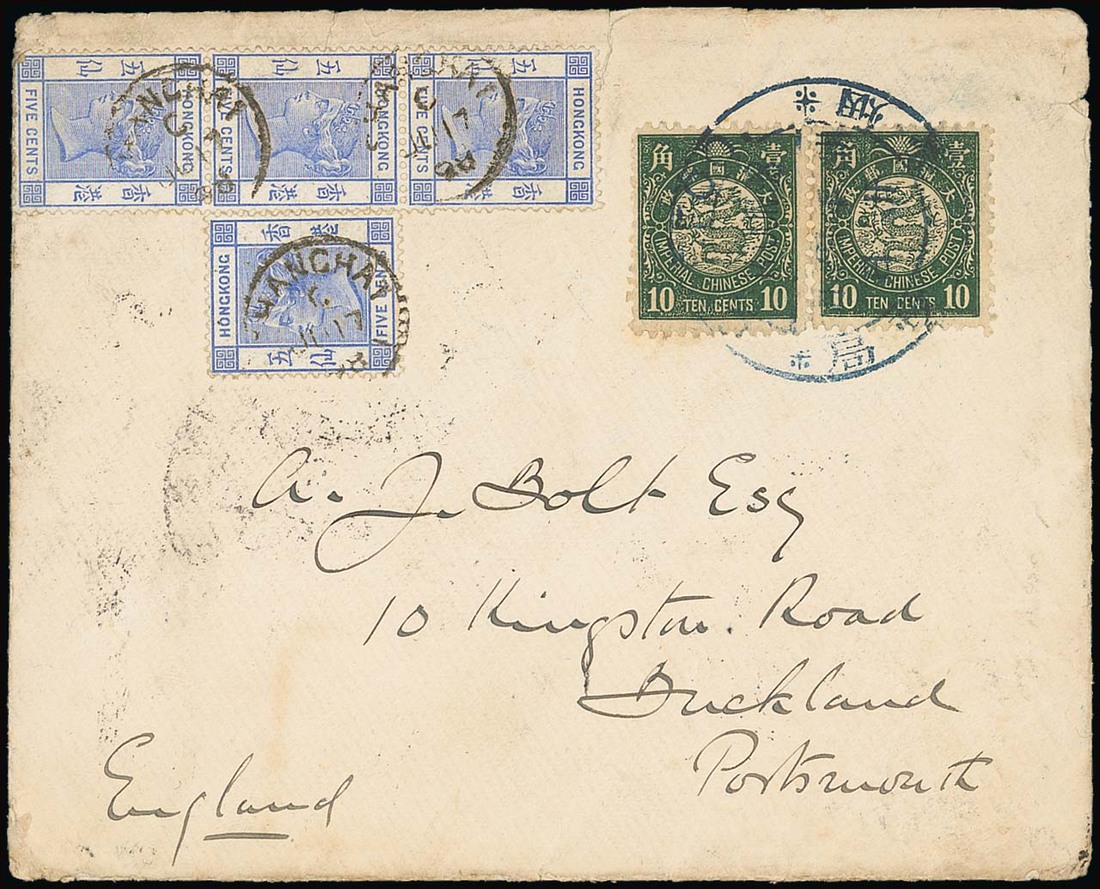 FIVE CENTS
五仙
HONGKONG
香港
FIVE CENTS
五仙
HONGKONG
香港
FIVE CENTS
五仙
HONGKONG
香港
香港
HONGKONG
FIVE CENTS
五仙
SHANGHAI
C
SHANGHAI
C
JU 17
98
SHANGHAI
C
JU 17
角 壹
大清國郵政
IMPERIAL CHINESE POST
10 TEN CENTS 10
角 壹
大清國郵政
IMPERIAL CHINESE POST
10 TEN CENTS 10
局
A. J. Bolt Esq
10 Kingston Road
Buckland
Portsmouth
England